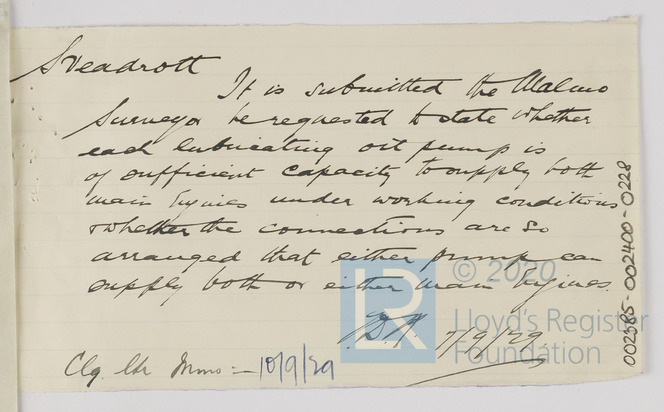 Sveadrott
It is submitted the Malmo
Surveyor be requested to state whether
each lubricating oil pump is
of sufficient capacity to supply both
main Engines under working conditions
whether the connections are so
arranged that either pump can
supply both or either main Engines.
7/9/29
Clg. Ltr Mmo :- 10/9/29
002385-002400-0228
LR
© 2020
Lloyd's Register
Foundation